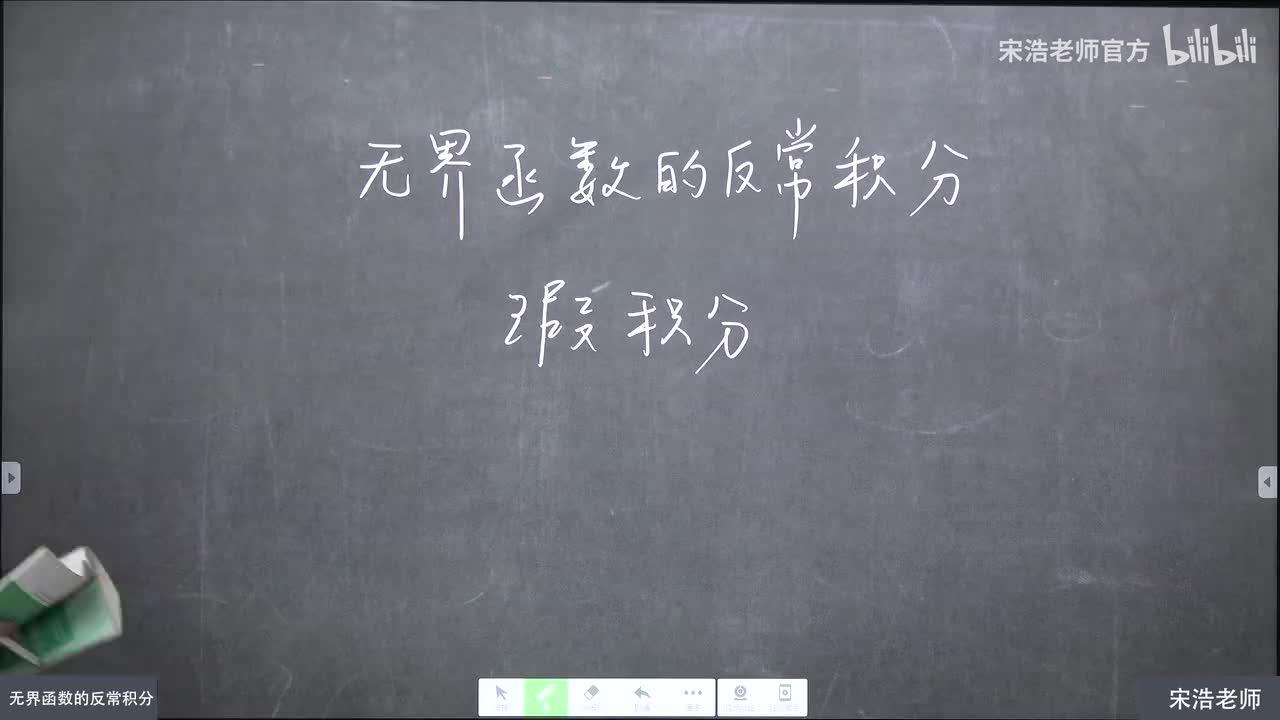 宋浩老师官方 bilibili
无界函数的反常积分
瑕积分
无界函数的反常积分
宋浩老师